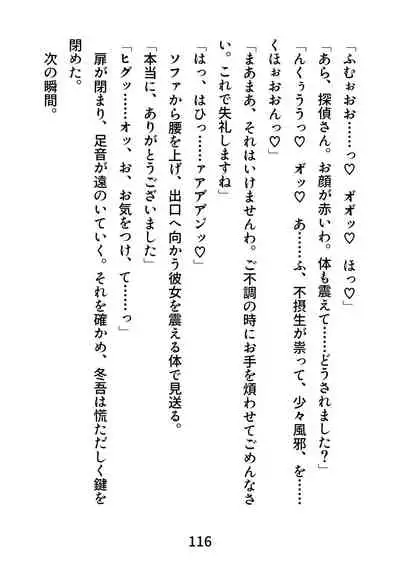 「ふむぉおお……っ♡　オオッ♡　ほっ♡」
「あら、探偵さん。お顔が赤いわ。体も震えて……どうされました？」
「んくぅううっ♡　オッ♡　あ……ふ、不摂生が祟って、少々風邪、を……
くほぉおおんっ♡」
「まあまあ、それはいけませんわ。ご不調の時にお手を煩わせてごめんなさ
い。これで失礼しますね」
「はっ、はひっ……ァアアアンジッ♡」
ソファから腰を上げ、出口へ向かう彼女を震える体で見送る。
「本当に、ありがとうございました」
「ヒグッ……オッ、お、お気をつけ、て……っ」
扉が閉まり、足音が遠のいていく。それを確かめ、冬吾は慌ただしく鍵を
閉めた。
次の瞬間。
116